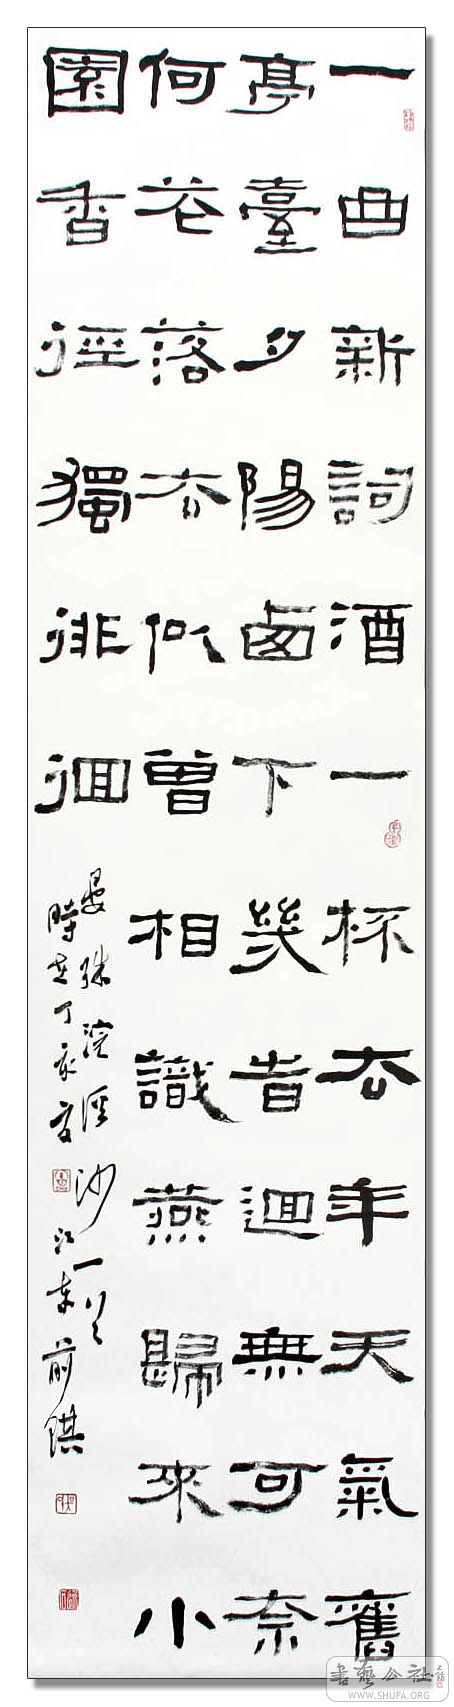 一曲新詞酒一杯去年天氣舊
亭臺夕陽西下幾旹迴無可奈
何花落去似曾相識燕歸來小
園香徑獨徘徊
晏殊浣溪沙一首
時在丁亥夏江東前
書藝公社
WWW.SHUFA.ORG